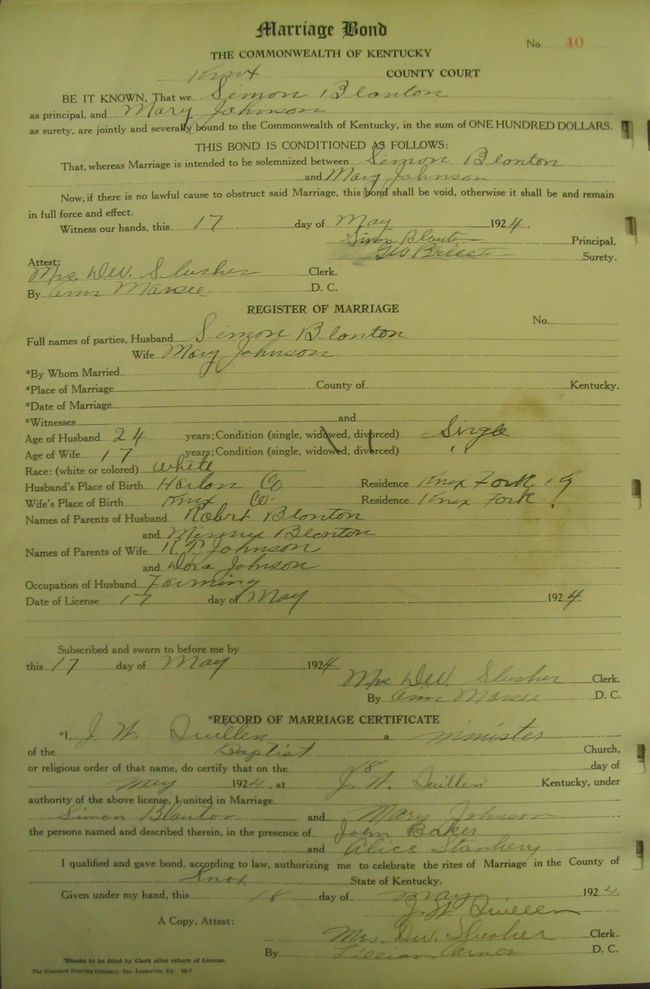 Marriage Bond
No. 40
THE COMMONWEALTH OF KENTUCKY
Knox COUNTY COURT
BE IT KNOWN, That we Simon Blanton
as principal, and Mary Johnson
as surety, are jointly and severally bound to the Commonwealth of Kentucky, in the sum of ONE HUNDRED DOLLARS.
THIS BOND IS CONDITIONED AS FOLLOWS:
That, whereas Marriage is intended to be solemnized between Simon Blanton
and Mary Johnson
Now, if there is no lawful cause to obstruct said Marriage, this bond shall be void, otherwise it shall be and remain
in full force and effect.
Witness our hands, this 17 day of May 1924.
Simon Blanton Principal.
Geo Surety.
Attest:
Mrs. DeW. Slusher Clerk.
By Ann Marsee D. C.
REGISTER OF MARRIAGE
No.
Full names of parties, Husband Simon Blanton
Wife Mary Johnson
*By Whom Married
*Place of Marriage County of Kentucky.
*Date of Marriage
*Witnesses and
Age of Husband 24 years; Condition (single, widowed, divorced) Single
Age of Wife 17 years; Condition (single, widowed, divorced) "
Race: (white or colored) White
Husband's Place of Birth Harlan Co Residence Knox Fork, Ky
Wife's Place of Birth Knox Co. Residence Knox Fork
Names of Parents of Husband Robert Blanton
and Minnie Blanton
Names of Parents of Wife Johnson
and Dora Johnson
Occupation of Husband Farming
Date of License 17 day of May 1924.
Subscribed and sworn to before me by
this 17 day of May 1924
Mrs DeW. Slusher Clerk.
By Ann Marsee D. C.
*RECORD OF MARRIAGE CERTIFICATE
*I, J. W. Quillen a minister
of the Baptist Church,
or religious order of that name, do certify that on the 18 day of
May 1924, at J. W. Quillen Kentucky, under
authority of the above license, I united in Marriage
Simon Blanton and Mary Johnson
the persons named and described therein, in the presence of John Baker
and Alice Stanberry
I qualified and gave bond, according to law, authorizing me to celebrate the rites of Marriage in the County of
Knox State of Kentucky.
Given under my hand, this 18 day of May 1924
J. W. Quillen
A Copy, Attest:
Mrs. DeW. Slusher Clerk.
By Lillian D. C.
*Blanks to be filled by Clerk after return of License.
The Standard Printing Company, Inc. Louisville, Ky.